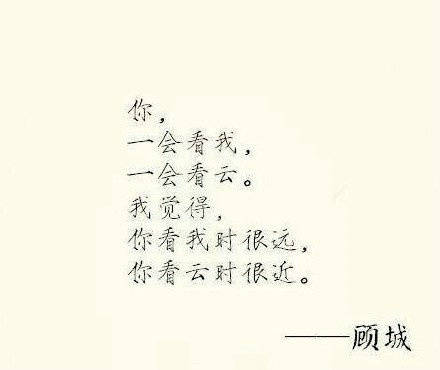 你，
一会看我，
一会看云。
我觉得，
你看我时很远，
你看云时很近。
———顾城